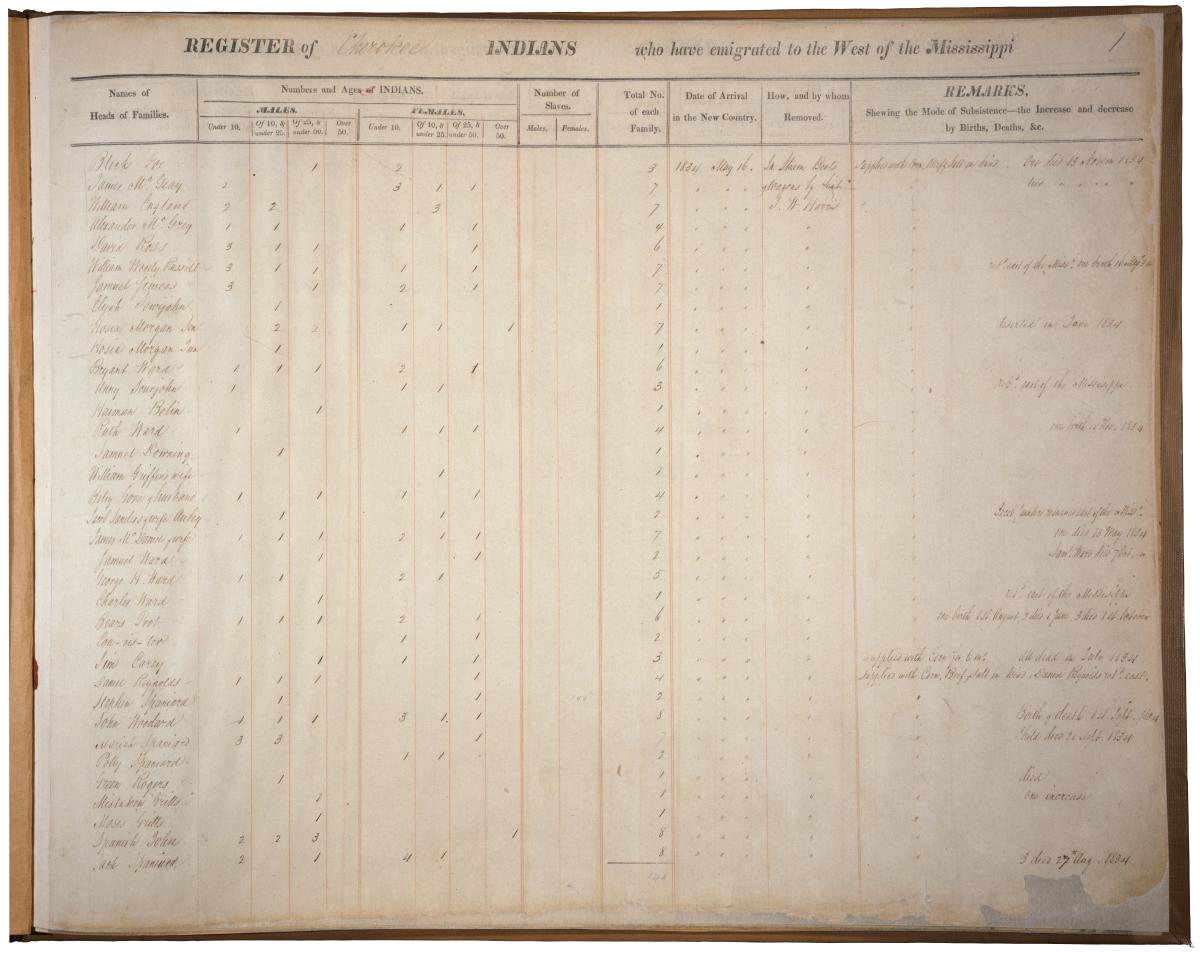 REGISTER of Cherokee INDIANS who have emigrated to the West of the Mississippi 1
Names of Heads of Families. Numbers and Ages of INDIANS. Number of Slaves. Total No. of each Family. Date of Arrival in the New Country. How, and by whom Removed. REMARKS, Shewing the Mode of Subsistence—the Increase and decrease by Births, Deaths, &c.
MALES. FEMALES. Males. Females.
Under 10. Of 10, & under 25. Of 25, & under 50. Over 50. Under 10. Of 10, & under 25. Of 25, & under 50. Over 50.
Black Fox 1 2 3 1834 May 16. In Steam Boats Supplied with Corn, Beef & Salt in kind. One died 13 1834
James Mc Gray 2 3 1 1 7 & Wagons by
William England 2 2 3 7 J. W. Harris
Alexander Mc Grey 1 1 1 1 4
David Ross 3 1 1 1 6
William Woody 3 1 1 1 1 7 east of the one birth 16
Samuel 3 1 2 1 7
Elijah Sourjohn 1 1
Morgan Sen 2 2 1 1 1 7 deserted in June 1834
Morgan Jun 1 1
Bryant Ward 1 1 1 2 1 6
Anny Sourjohn 1 1 1 3 east of the Mississippi
Bolin 1 1
Ruth Ward 1 1 1 1 4 one birth 1834
Samuel Downing 1 1
William Griffins wife 1
Betsy & husband 1 1 1 1 4
Sanders & wife 1 1 2 remained east of the
James Mc Daniel & wife 1 1 1 2 1 1 7 one died 13 May 1834
Samuel Ward 1 1 2 Saml Ward died
George K. Ward 1 1 2 1 5
Charles Ward 1 1 east of the Mississippi
Bears Foot 1 1 1 2 1 6 one birth 1st August, 2 died June, 3 died 1st October
1 1 2
Jim Carey 1 1 1 3 Supplied with Corn for 6 ms. All dead in July 1834
Daniel Reynolds 1 1 1 1 4 Supplied with Corn, Beef, Salt in kind. Daniel Reynolds east.
Stephen Spaniard 1 1 2
John Woodard 1 1 1 3 1 1 8 Birth & death 1st Sept. 1834
Spaniard 3 3 1 7 Child died 20 Sept. 1834
Polly Spaniard 1 1 2
Green Rogers 1 1 died
Mistaken Gritts 1 1 one increase
Moses Gritts 1 1
Spanish John 2 2 3 1 8
Jack Spaniard 2 1 4 1 8 3 died 27th Aug. 1834